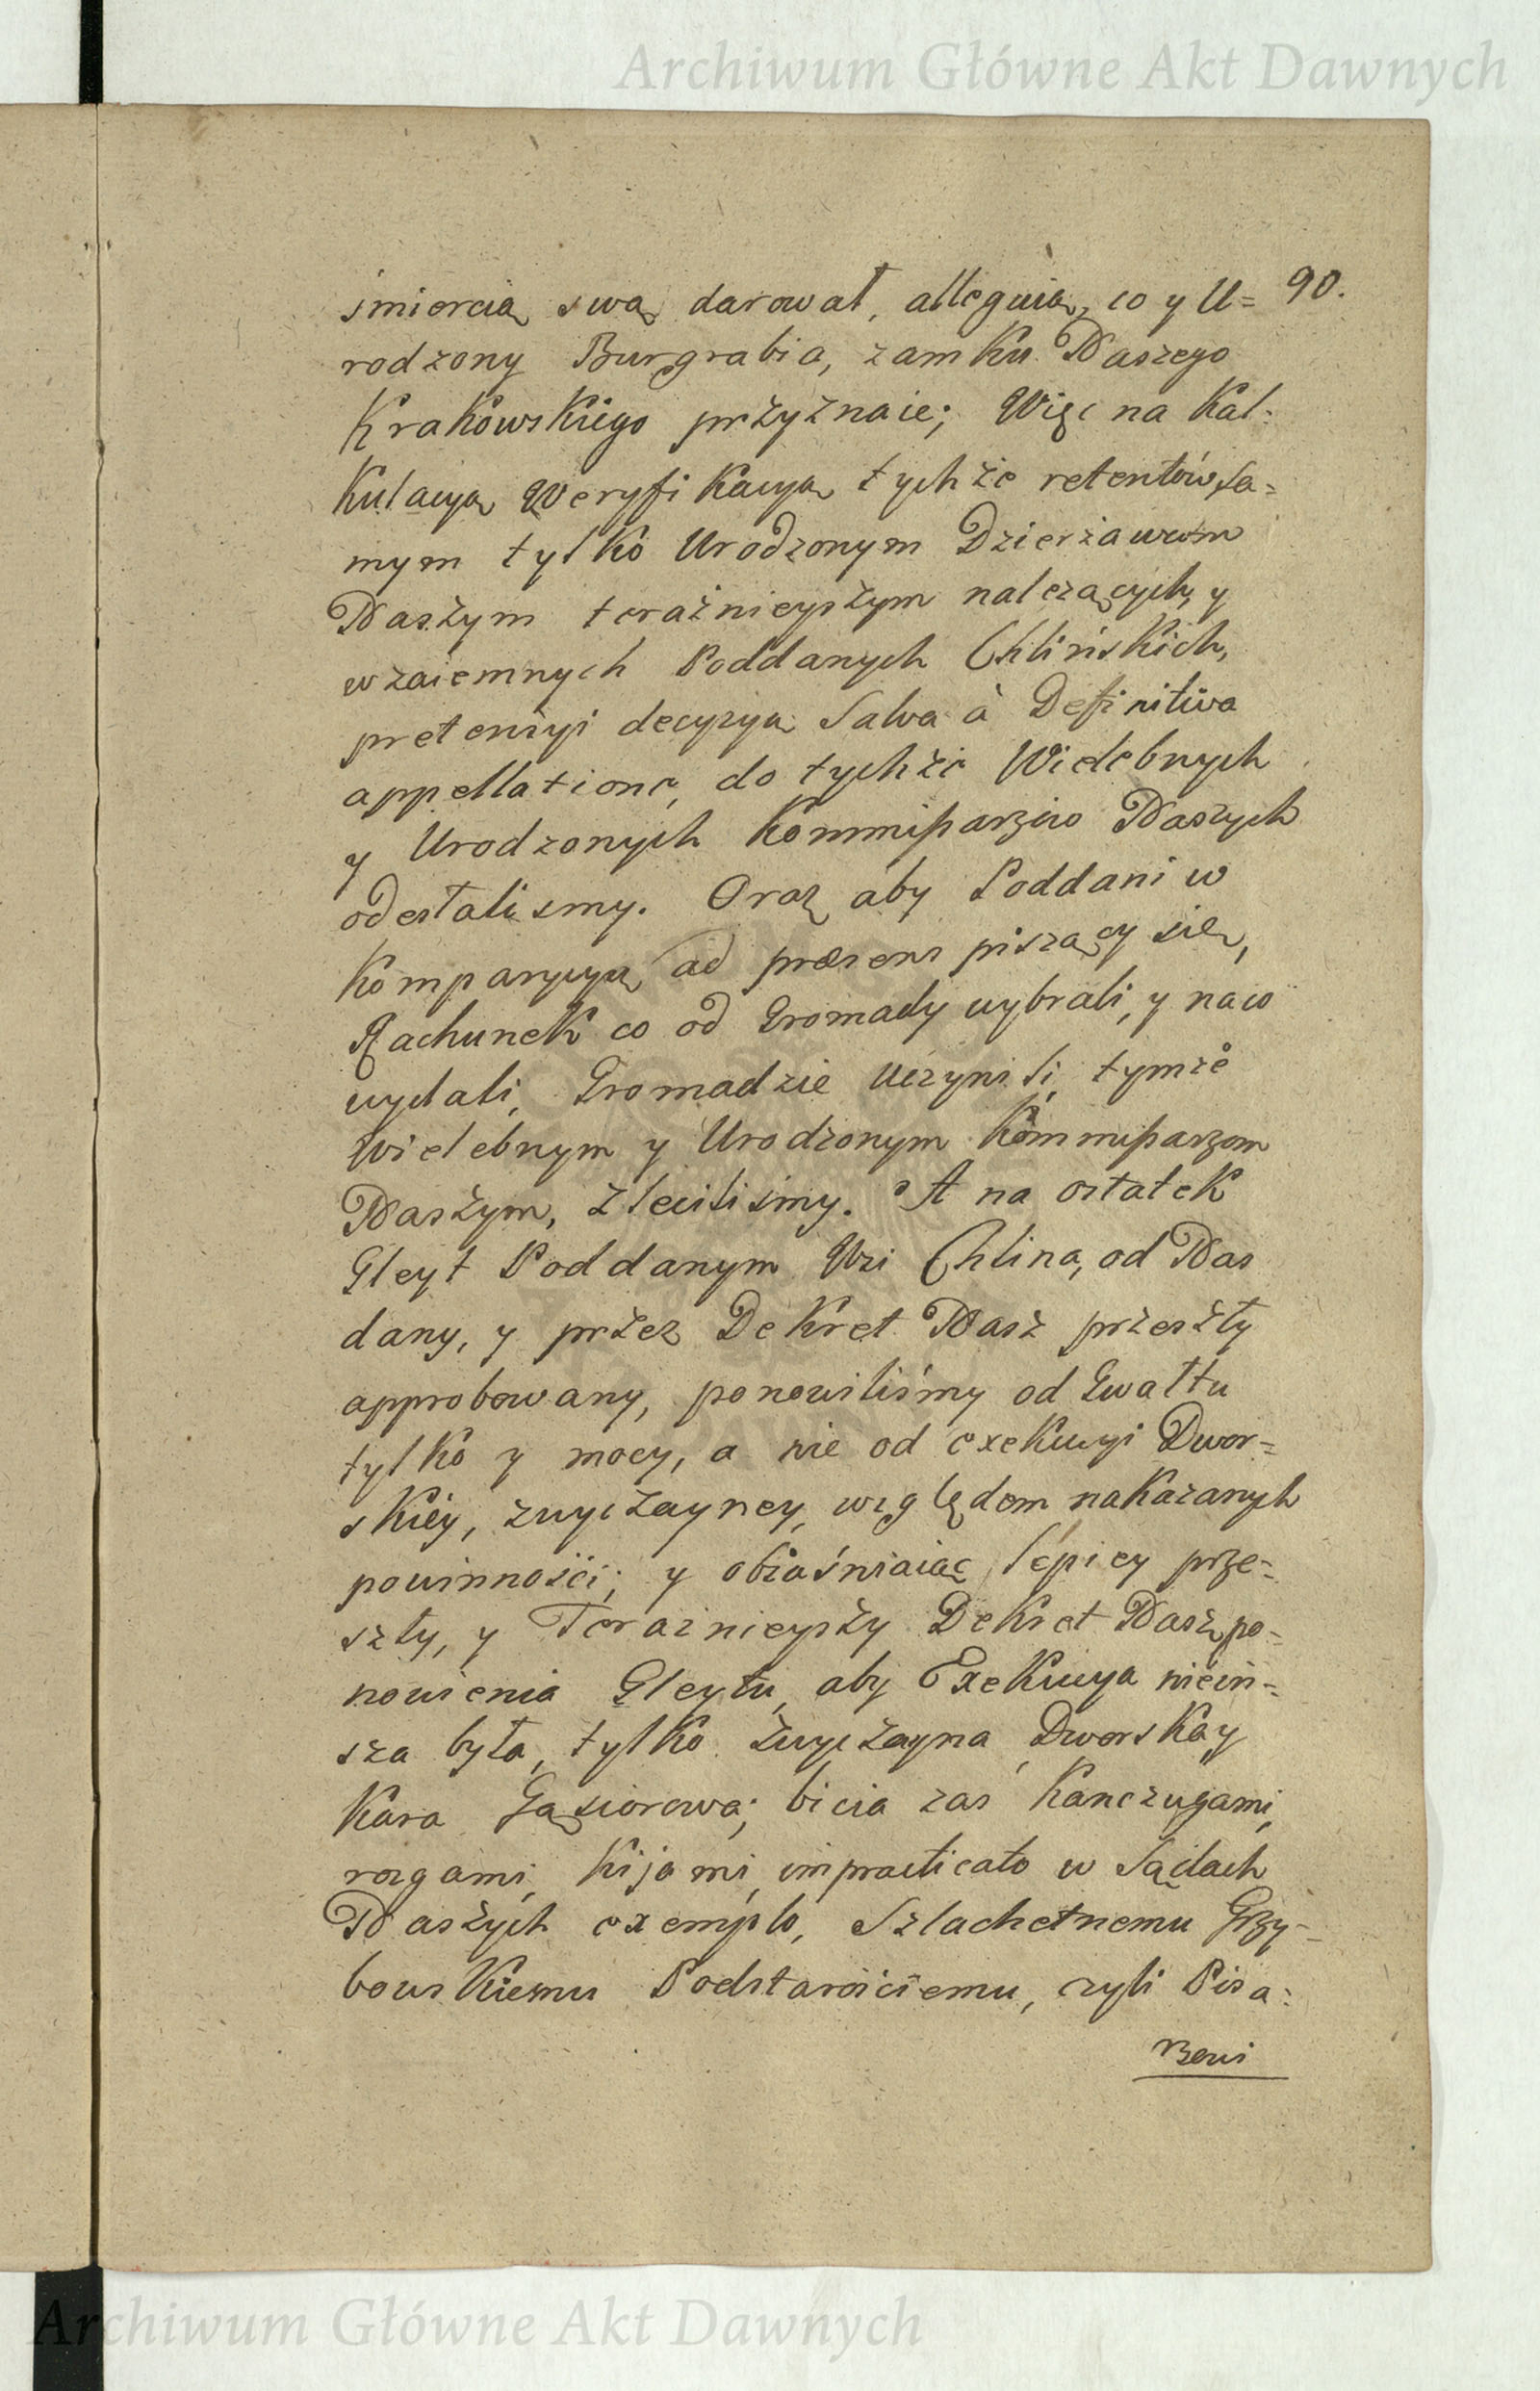 Archiwum Główne Akt Dawnych
śmiercią swą darował, alleguią, co y U= 90.
rodzony Burgrabia, zamku Naszego
Krakowskiego przyznaie; Więc na Kal=
kulacyą Weryfikacyą tychże retentów sa=
mym tylko Urodzonym Dzierżawcom
Naszym teraźnieyszym należących, y
wzaiemnych Poddanych Chlińskich,
pretensyi decyzyą Salva à Definitiva
appellatione, do tychże Wielebnych
y Urodzonych Kommissarzów Naszych
odesłalismy. Oraz aby Poddani w
Komparycyą ad præsens piszący się,
Rachunek co od Gromady wybrali, y na co
wydali, Gromadzie uczynili, tymże
Wielebnym y Urodzonym Kommissarzom
Naszym, zleciliśmy. A na ostatek
Gleyt Poddanym Wsi Chlina, od Nas
dany, y przez Dekret Nasz przeszły
approbowany, ponowiliśmy od Gwałtu
tylko y mocy, a nie od exekucyi Dwor=
skiey, zwyczayney, względem nakazanych
powinności; y obiaśniaiąc lepiey prze=
szły, y Teraźnieyszy Dekret Nasz po=
nowienia Gleytu, aby Exekucya nie in=
sza była, tylko zwyczayna Dworska y
Kara Gąsiorowa; bicia zaś Kanczugami,
rozgami, kijami, impracticato w Sądach
Naszych exemplo, Szlachetnemu Grzy=
bowskiemu Podstarościemu, czyli Pisa=
rzowi
Archiwum Główne Akt Dawnych